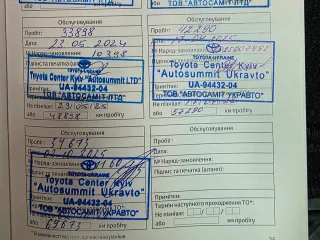 ТОВ "АВТОСАМІТ ЛТД"
ТОВ "АВТОСАМІТ УКРАВТО"
Обслуговування
Пробіг: 33898
Дата: 23.05.2024
№ Наряд-замовлення: 10398
TOYOTA-UKRAINE
Toyota Center Kyiv "Autosummit LTD"
UA-94432-04
ТОВ "АВТОСАМІТ ЛТД"
Не пізніше: 23/05/25
або 48898 км пробігу
Обслуговування
Пробіг: 42290
Дата:
№ Наряд-замовлення:
TOYOTA-UKRAINE
Toyota Center Kyiv
"Autosummit Ukravto"
UA-94432-04
ТОВ "АВТОСАМІТ УКРАВТО"
Не пізніше:
або 57290 км пробігу
Обслуговування
Пробіг: 54673
Дата:
№ Наряд-замовлення:
TOYOTA-UKRAINE
Toyota Center Kyiv
"Autosummit Ukravto"
UA-94432-04
ТОВ "АВТОСАМІТ УКРАВТО"
або 69673 км пробігу
Обслуговування
Пробіг:
Дата:
№ Наряд-замовлення:
Примітки:
Термін наступного проходження ТО*:
Не пізніше
або км пробігу